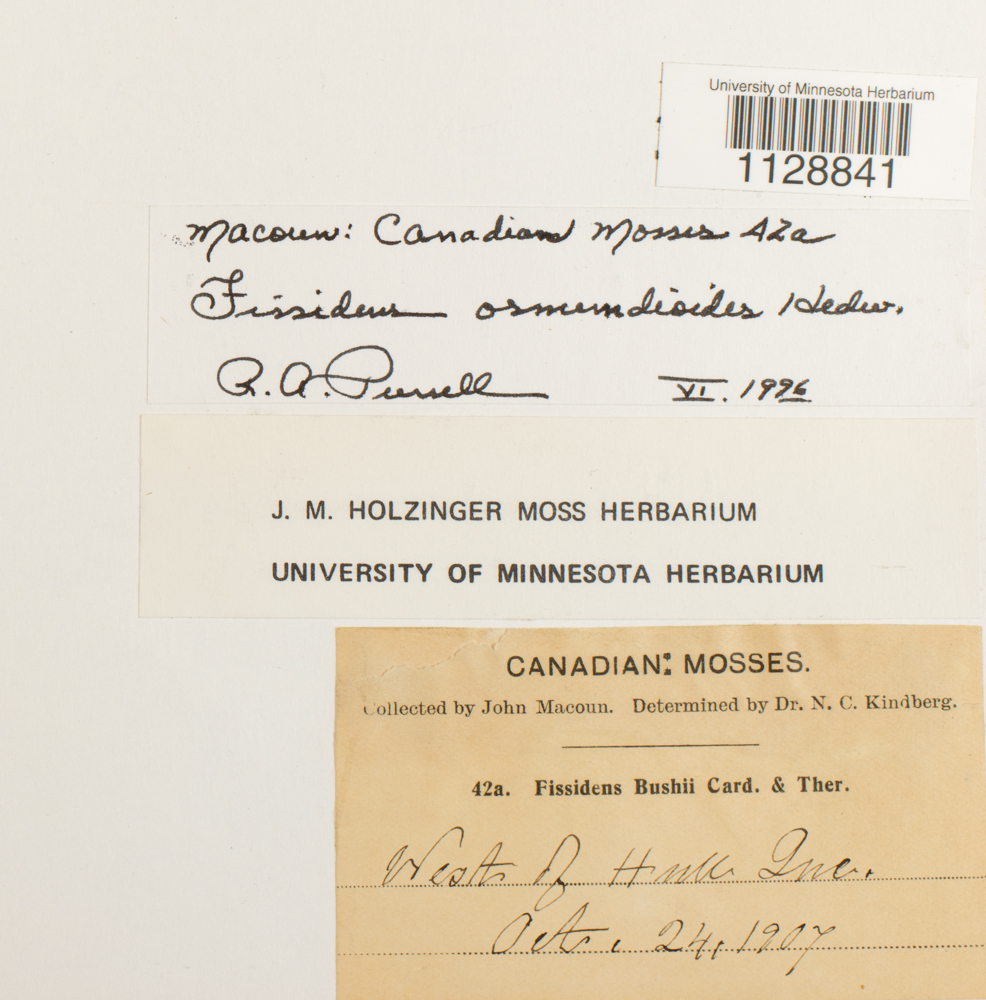 University of Minnesota Herbarium
1128841
Macoun: Canadian Mosses 42a
Fissidens osmundioides Hedw.
R. A. Pursell VI. 1996
J. M. HOLZINGER MOSS HERBARIUM
UNIVERSITY OF MINNESOTA HERBARIUM
CANADIAN: MOSSES.
Collected by John Macoun. Determined by Dr. N. C. Kindberg.
42a. Fissidens Bushii Card. & Ther.
West of Hull Que.
Oct. 24, 1907